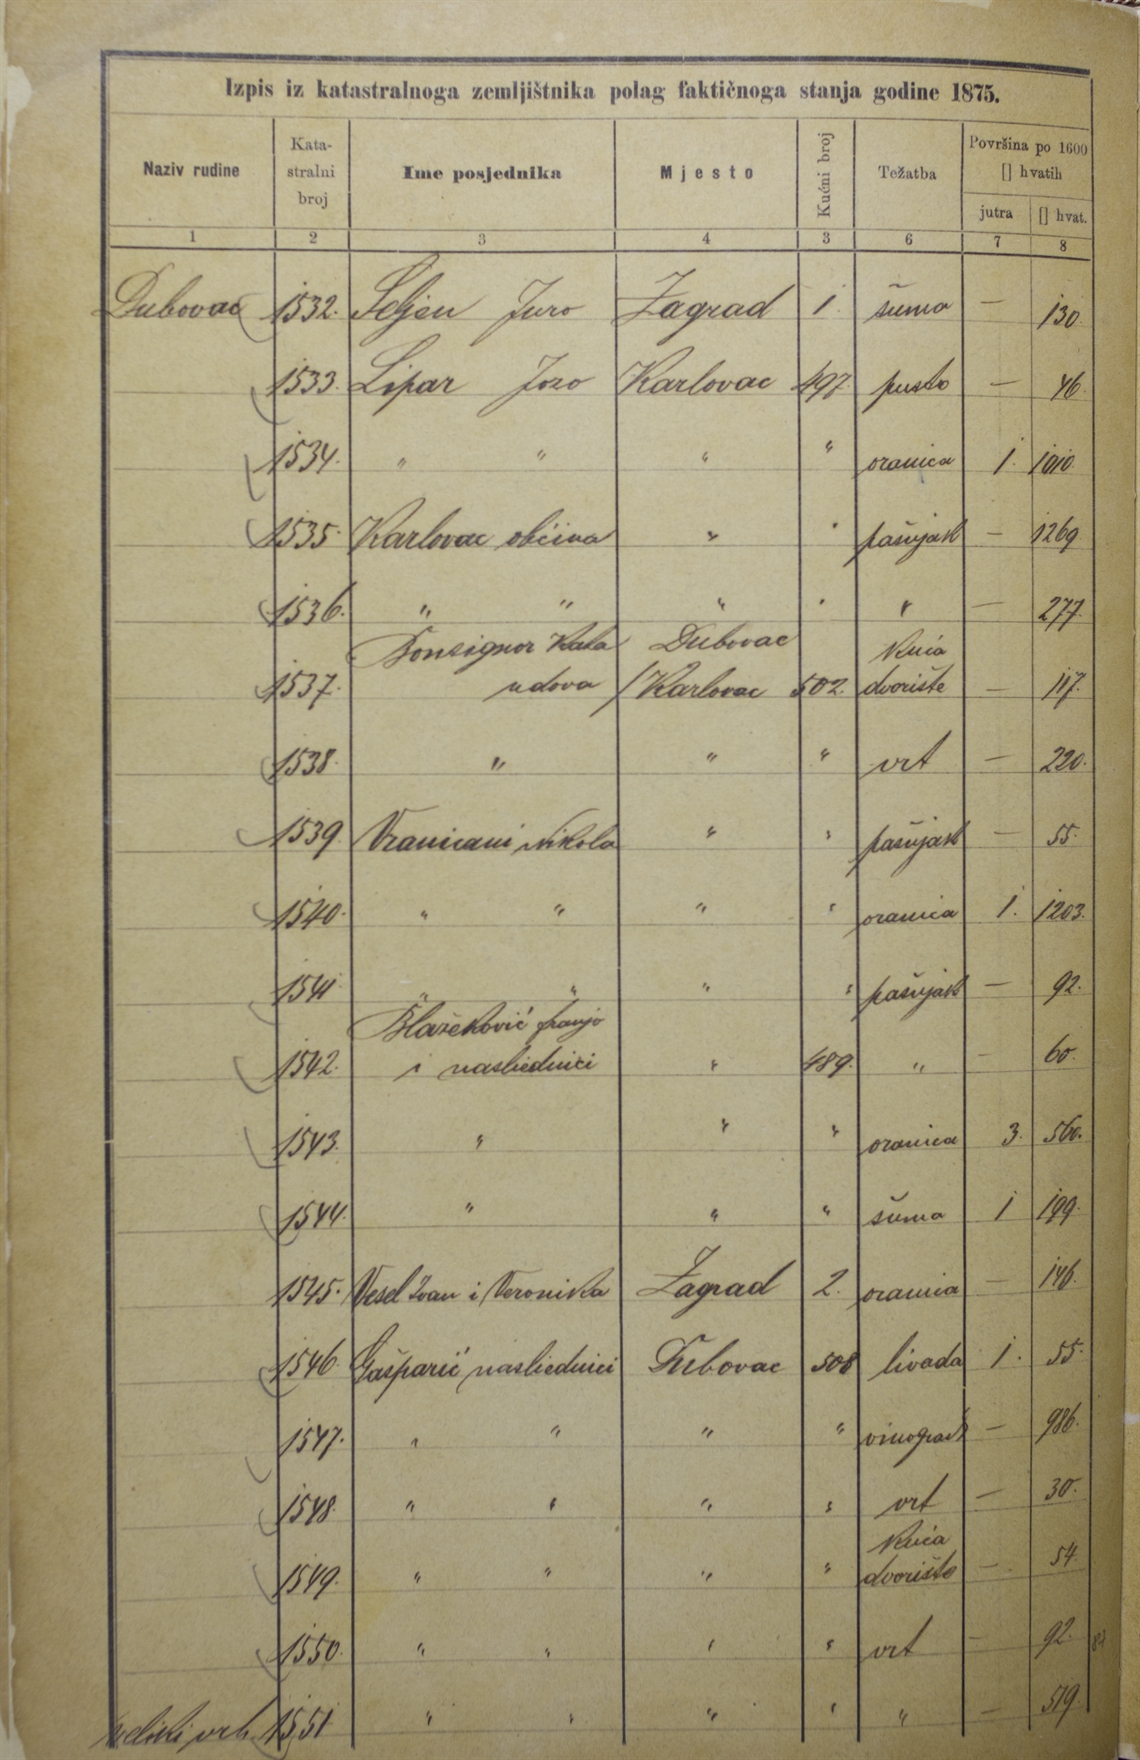 Izpis iz katastralnoga zemljištnika polag faktičnoga stanja godine 1875.
Naziv rudine Kata-stralni broj Ime posjednika Mjesto Kućni broj Težatba Površina po 1600 [] hvatih
jutra [] hvat.
1 2 3 4 3 6 7 8
Dubovac 1532. Juro Zagrad 1 šuma — 130.
1533. Lipar Jozo Karlovac 497 pusto — 46.
1534. " " " " oranica 1. 1010
1535. Karlovac občina " " pašnjak — 1269
1536. " " " " " — 277.
Bonsignor Kata Dubovac kuća
1537. udova /Karlovac 502. dvorište — 117.
1538. " " " vrt — 220.
1539. Vranicani Nikola " " pašnjak — 55.
1540. " " " " oranica 1. 1203.
1541. " " " " pašnjak — 92.
Blažeković franjo
1542. i nasliednici " 489. " — 60.
1543. " " " oranica 3. 560.
1544. " " " šuma 1 199.
1545. Vesel Ivan i Veronika Zagrad 2. oranica — 146.
1546. Gašparić nasliednici Dubovac 508 livada 1. 55.
1547. " " " " vinograd — 986.
1548. " " " " vrt — 30.
kuća
1549. " " " " dvorište — 54.
1550. " " " " vrt — 92.
vrh 1551 " " " " " — 519.